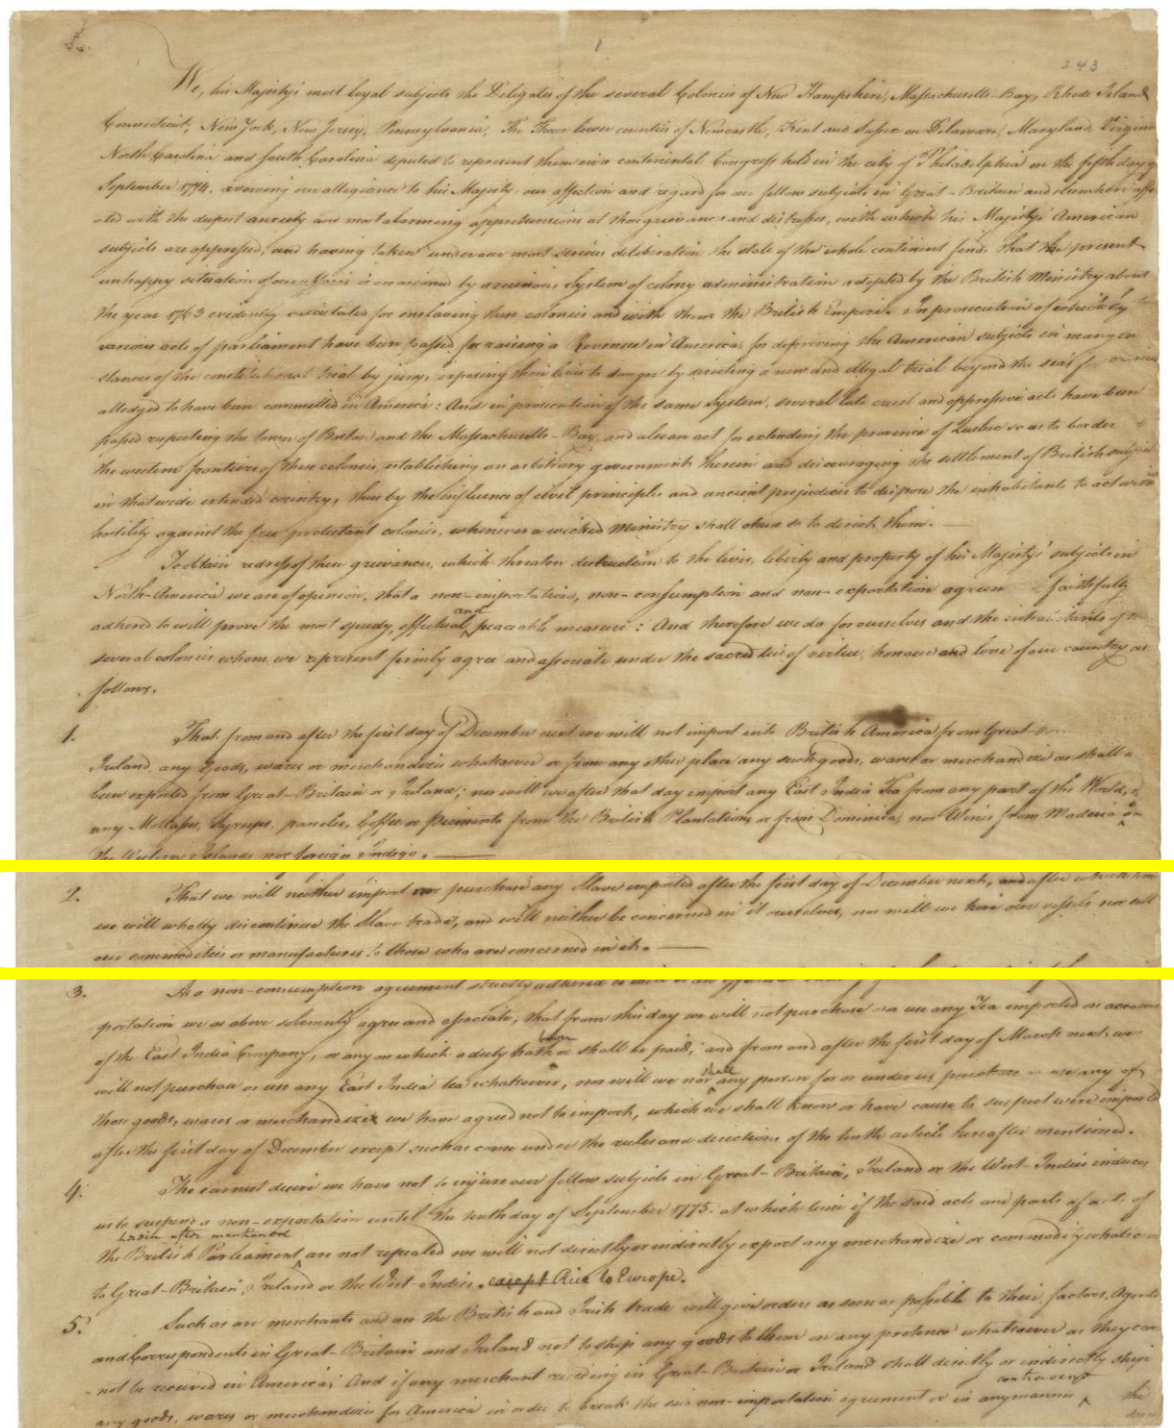 1
243
We, his Majesty's most loyal subjects the Delegates of the several Colonies of New Hampshire, Massachusetts-Bay, Rhode Island
Connecticut, New York, New Jersey, Pennsylvania, The Three lower counties of Newcastle, Kent and Sussex on Delaware, Maryland, Virginia
North Carolina and South Carolina deputed to represent them in a continental Congress held in the city of Philadelphia on the fifth day of
September 1774. avowing our allegiance to his Majesty, our affection and regard for our fellow subjects in Great-Britain and elsewhere affe
cted with the deepest anxiety and most alarming apprehensions at those grievances and distresses, with which his Majesty's American
subjects are oppressed, and having taken under our most serious deliberation the state of the whole continent find, that the present
unhappy situation of our affairs is occasioned by a ruinous System of colony administration adopted by the British Ministry about
the year 1763 evidently calculated for enslaving these colonies and with them the British Empire. In prosecution of which system
various acts of parliament have been passed for raising a Revenue in America, for depriving the American subjects in many in
stances of the constitutional trial by jury, exposing their lives to danger by directing a new and illegal trial beyond the seas for crimes
alledged to have been committed in America: And in prosecution of the same System, several late cruel and oppressive acts have been
passed respecting the town of Boston and the Massachusetts-Bay, and also an act for extending the province of Quebec so as to border
the western frontiers of these colonies, establishing an arbitrary government therein and discouraging the settlement of British subjects
in that wide extended country, thus by the influence of civil principles and ancient prejudices to dispose the inhabitants to act with
hostility against the free protestant colonies, whenever a wicked Ministry shall chuse so to direct them.
To obtain redress of these grievances, which threaten destruction to the lives, liberty and property of his Majesty's subjects in
North-America we are of opinion, that a non-importation, non-consumption and non-exportation agreem faithfully
and
adhered to will prove the most speedy, effectual, peaceable measure: And therefore we do for ourselves and the inhabitants of the
several colonies whom we represent firmly agree and associate under the sacred ties of virtue, honour and love of our country as
follows.
1. That from and after the first day of December next we will not import into British America from Great-
Ireland any Goods, wares or merchandizes whatsoever or from any other place any such goods, wares or merchandize as shall
been exported from Great-Britain or Ireland; nor will we after that day import any East India Tea from any part of the World,
any Molasses, Syrups, paneles, Coffee or Piemento from the British Plantations or from Dominica, nor Wines from Madeira or
the Western Islands nor foreign Indigo.
2. That we will neither import nor purchase any Slave imported after the first day of December next, and after which time
we will wholly discontinue the Slave trade, and will neither be concerned in it ourselves, nor will we hire our vessels nor sell
our commodities or manufactures to those who are concerned in it.
3. As a non-consumption agreement strictly adhered to
portation we as above solemnly agree and associate, that from this day we will not purchase or use any Tea imported on account
been
of the East India Company, or any on which a duty hath or shall be paid; and from and after the first day of March next we
shall
will not purchase or use any East India tea whatsoever, nor will we nor any person for or under us purchase or use any of
those goods, wares or merchandizes we have agreed not to import, which we shall know or have cause to suspect were imported
after the first day of December except such as come under the rules and directions of the tenth article hereafter mentioned.
4. The earnest desire we have not to injure our fellow subjects in Great-Britain, Ireland or the West-Indies induces
us to suspend a non-exportation until the tenth day of September 1775. at which time if the said acts and parts of acts of
herein after mentioned
the British Parliament are not repealed we will not directly or indirectly export any merchandize or commodity whatsoever
to Great-Britain, Ireland or the West-Indies. except Rice to Europe.
5. Such as are merchants and use the British and Irish trade will give orders as soon as possible to their factors, Agents
and Correspondents in Great-Britain and Ireland not to ship any goods to them on any pretence whatsoever as they can
not be received in America; And if any merchant residing in Great-Britain or Ireland shall directly or indirectly ship
contravene
any goods, wares or merchandizes for America in order to break the said non-importation agreement or in any manner the